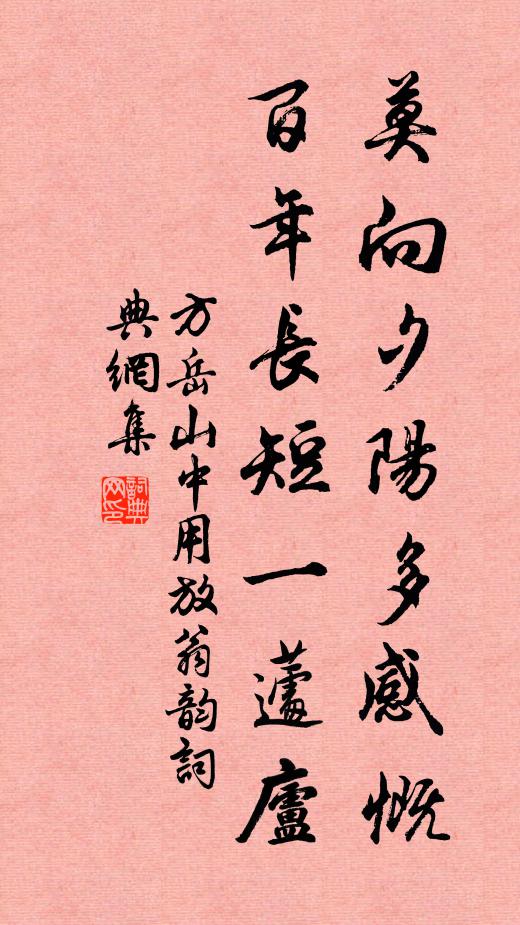 莫向夕陽多感慨
百年長短一蘧廬
方岳山中用放翁韵詞
典網集
詞典网印